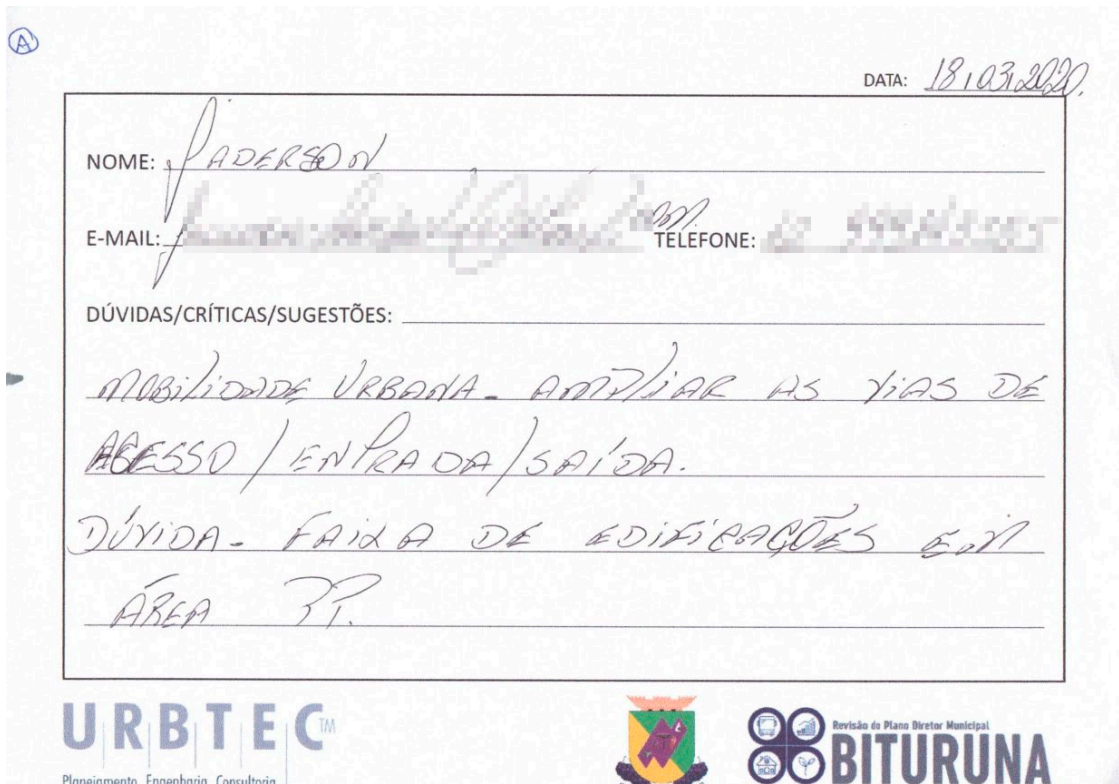 A
DATA: 18/03/2020.
NOME: JADERSON
E-MAIL: TELEFONE:
DÚVIDAS/CRÍTICAS/SUGESTÕES:
MOBILIDADE URBANA - AMPLIAR AS VIAS DE
ACESSO / ENTRADA / SAÍDA.
DÚVIDA - FAIXA DE EDIFICAÇÕES EM
ÁREA ??.
URBTEC TM
Planejamento Engenharia Consultoria
Revisão do Plano Diretor Municipal
BITURUNA